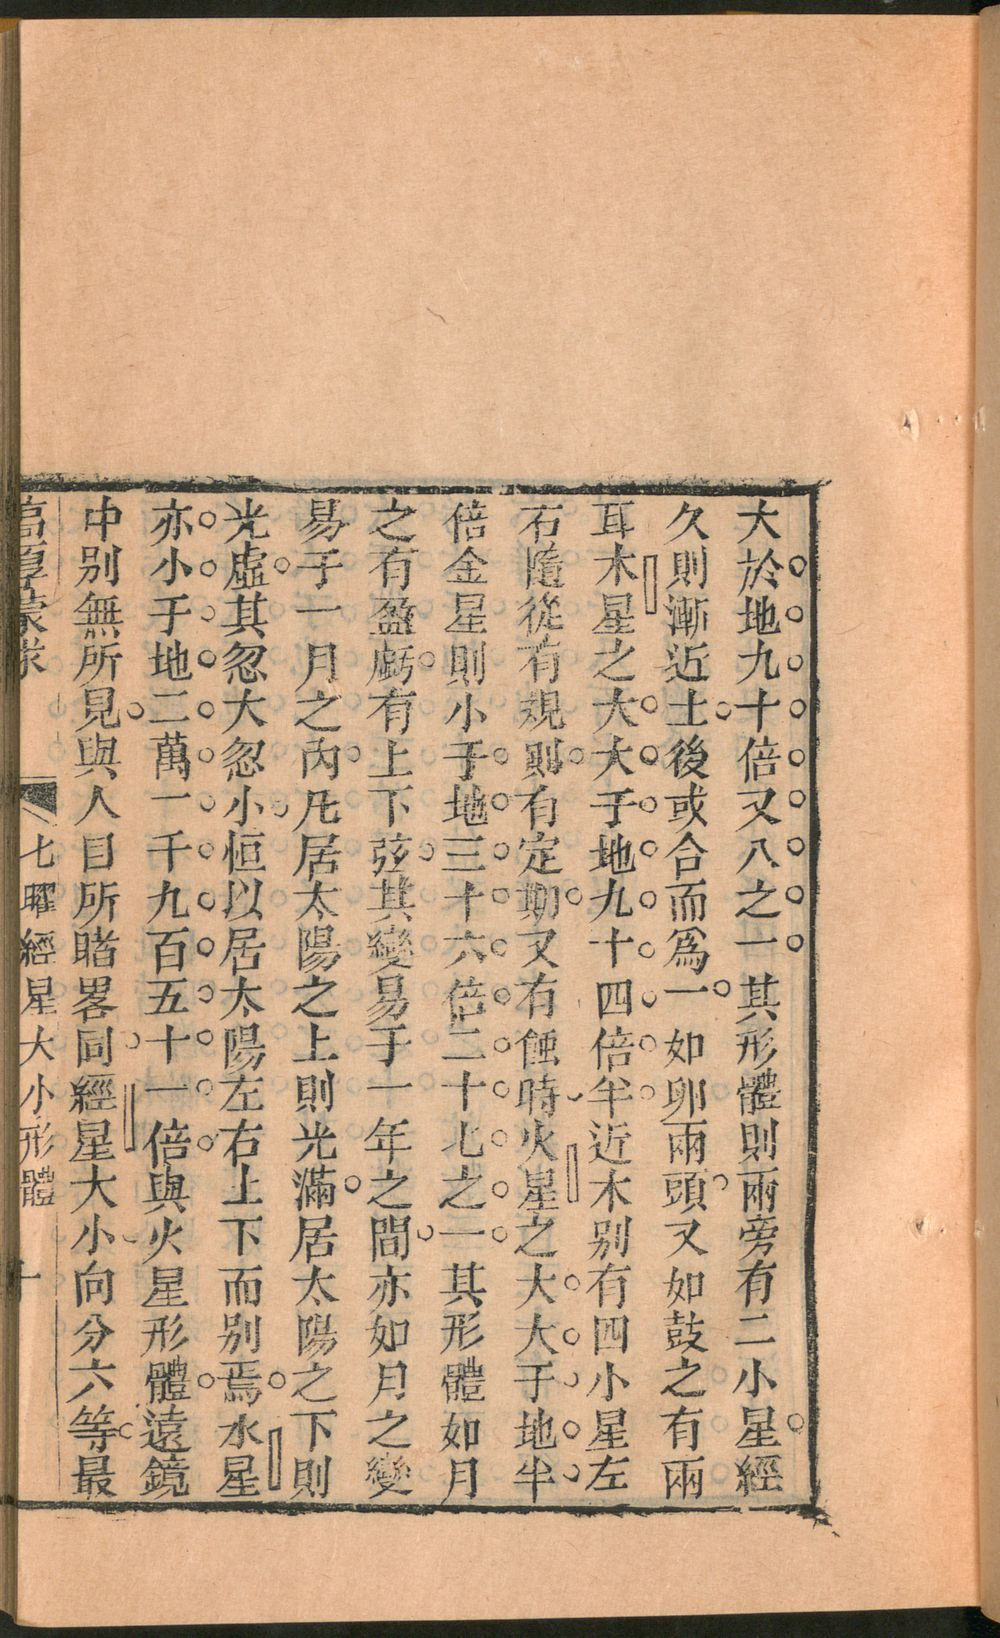 大於地九十倍又八之一其形體則兩旁有二小星經
久則漸近土後或合而爲一如卵兩頭又如鼓之有兩
耳木星之大大于地九十四倍半近木别有四小星左
右隨從有規則有定期又有蝕時火星之大大于地半
倍金星則小于地三十六倍二十七之一其形體如月
之有盈虧有上下弦其變易于一年之間亦如月之變
易于一月之内凡居太陽之上則光滿居太陽之下則
光虛其忽大忽小恒以居太陽左右上下而别焉水星
亦小于地二萬一千九百五十一倍與火星形體遠鏡
中别無所見與人目所睹畧同經星大小向分六等最
高厚蒙求
七曜經星大小形體
十